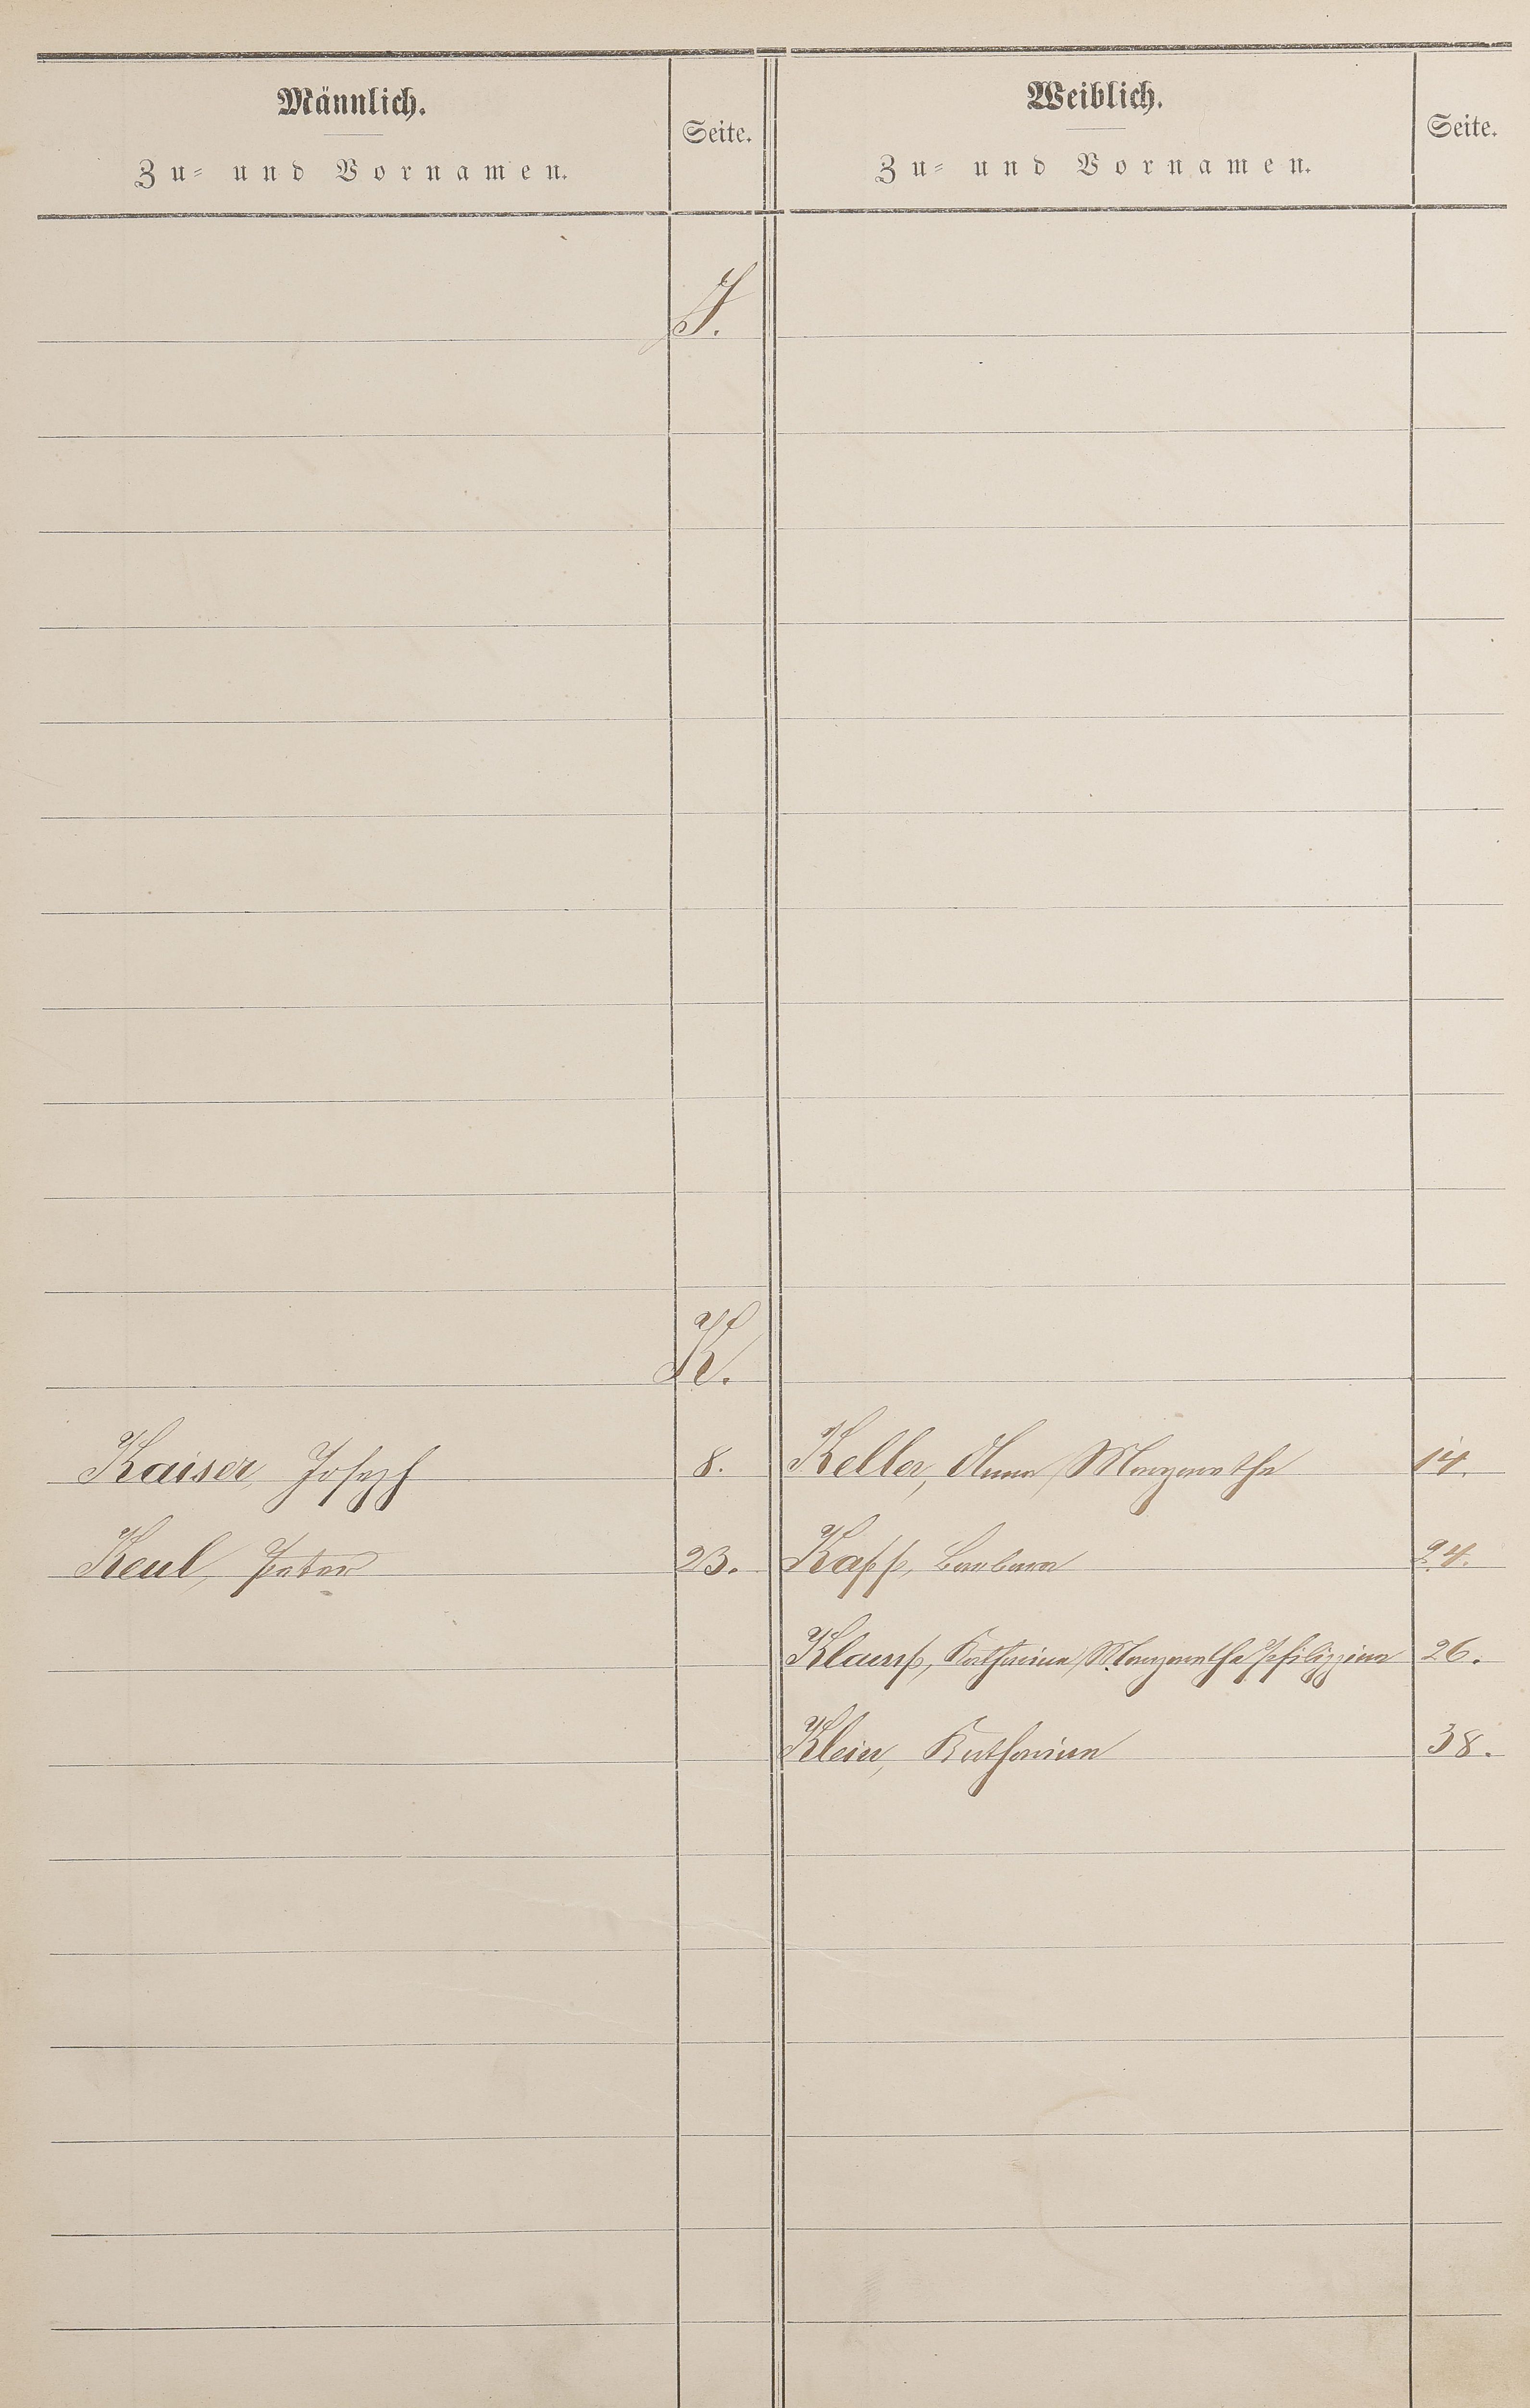 Männlich. Seite. Weiblich. Seite.
Zu- und Vornamen. Zu- und Vornamen.
J.
K.
Kaiser, Joseph 8. Keller, Anna Margarethe 14.
Keul, Peter 23. Kapp, Barbara 24.
Klamp, Katharina Margaretha Philippina 26.
Klein, Katharina 38.